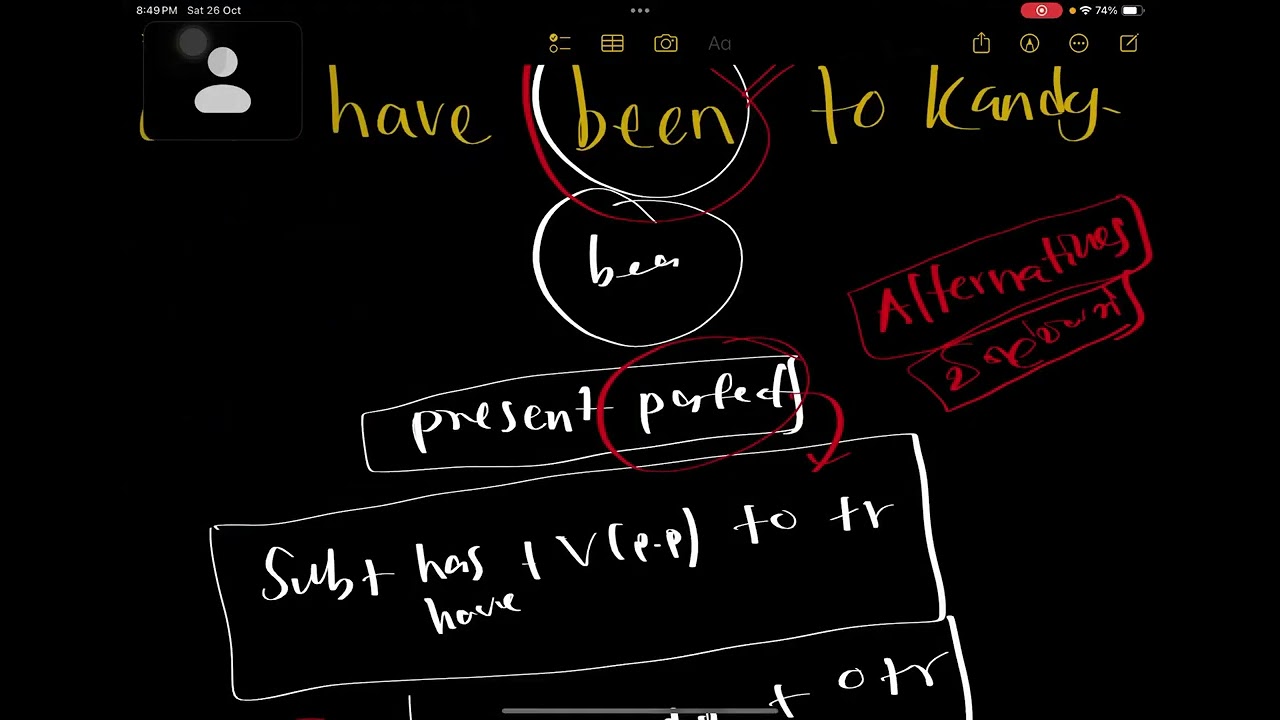 8:49 PM Sat 26 Oct
74%
Aa
have been to Kandy.
been
Alternatives
present perfect
Sub + has + V(p.p) to tr
have
+ otr